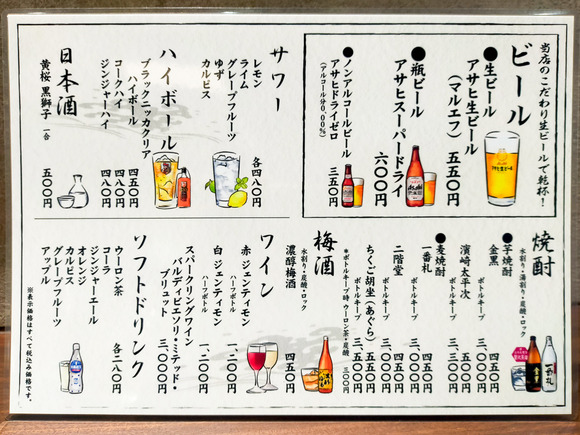 当店のこだわり生ビールで乾杯!
ビール
●生ビール
アサヒ生ビール
(マルエフ) 五五〇円
●瓶ビール
アサヒスーパードライ
六〇〇円
●ノンアルコールビール
アサヒドライゼロ
(アルコール分0.00%) 三五〇円
サワー
レモン
ライム
グレープフルーツ
ゆず
カルピス
各四八〇円
ハイボール
ブラックニッカクリア
ハイボール 四五〇円
コークハイ 四八〇円
ジンジャーハイ 四八〇円
日本酒
黄桜 黒獅子 一合 五〇〇円
焼酎
水割り・湯割り・炭酸・ロック
●芋焼酎
金黒
ボトルキープ
濱崎太平次
ボトルキープ
●麦焼酎
一番札 四五〇円
ボトルキープ 三、〇〇〇円
二階堂
ボトルキープ
ちくご胡坐(あぐら)
ボトルキープ 三、五〇〇円
*ボトルキープ時 ウーロン茶・炭酸 三〇〇円
梅酒
水割り・炭酸・ロック
濃醇梅酒 四五〇円
ワイン
赤 ジェンティモン
ハーフボトル 一、二〇〇円
白 ジェンティモン
ハーフボトル 一、二〇〇円
スパークリングワイン
バルディビエソ・リミテッド・
ブリュット 三、〇〇〇円
ソフトドリンク
ウーロン茶
コーラ
ジンジャーエール
オレンジ
カルピス
グレープフルーツ
アップル
各二八〇円
※表示価格はすべて税込み価格です。